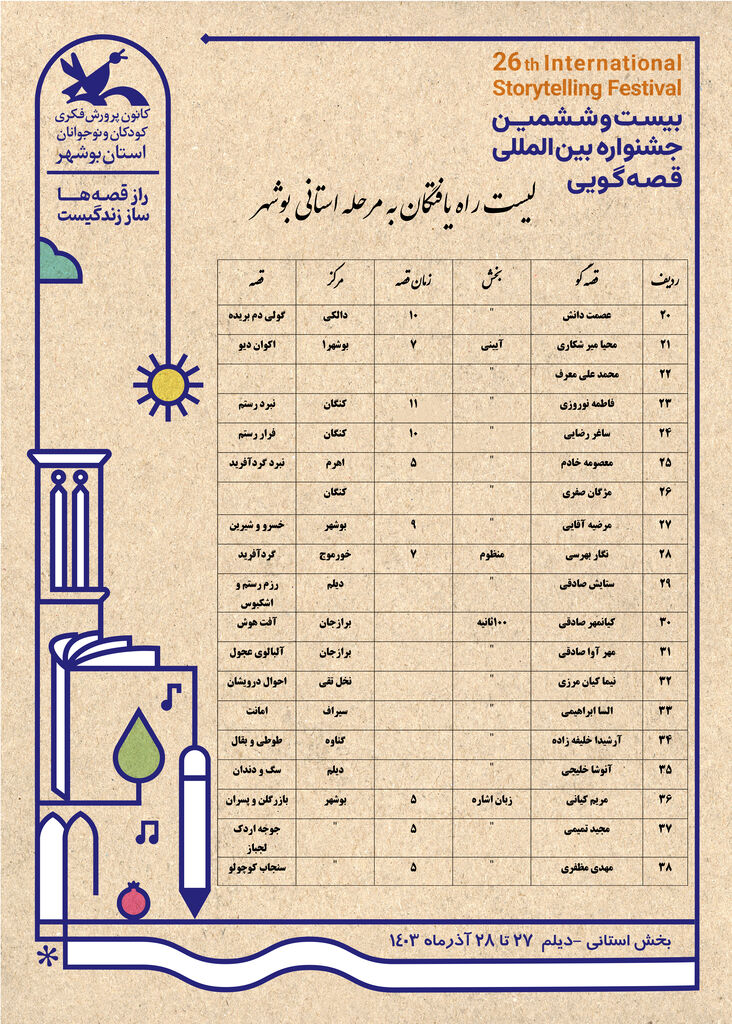 26th International
Storytelling Festival
بیست‌وششمین
جشنواره بین‌المللی
قصه‌گویی
کانون پرورش فکری
کودکان و نوجوانان
استان بوشهر
راز قصه‌ها
ساز زندگیست
لیست راه یافتگان به مرحله استانی بوشهر
ردیف قصه گو بخش زمان قصه مرکز قصه
۲۰ عصمت دانش " ۱۰ دالکی گولی دم بریده
۲۱ محیا میر شکاری آیینی ۷ بوشهر۱ اکوان دیو
۲۲ محمد علی معرف "
۲۳ فاطمه نوروزی " ۱۱ کنگان نبرد رستم
۲۴ ساغر رضایی " ۱۰ کنگان فرار رستم
۲۵ معصومه خادم " ۵ اهرم نبرد گردآفرید
۲۶ مژگان صفری " کنگان
۲۷ مرضیه آقایی " ۹ بوشهر خسرو و شیرین
۲۸ نگار بهرسی منظوم ۷ خورموج گردآفرید
۲۹ ستایش صادقی " دیلم رزم رستم و
اشکبوس
۳۰ کیانمهر صادقی ۱۰۰ثانیه برازجان آفت هوش
۳۱ مهر آوا صادقی " برازجان آلبالوی عجول
۳۲ نیما کیان مرزی " نخل تقی احوال درویشان
۳۳ السا ابراهیمی " سیراف امانت
۳۴ آرشیدا خلیفه زاده " گناوه طوطی و بقال
۳۵ آنوشا خلیجی " دیلم سگ و دندان
۳۶ مریم کیانی زبان اشاره ۵ بوشهر بازرگان و پسران
۳۷ مجید تمیمی " ۵ " جوجه اردک
لجباز
۳۸ مهدی مظفری " ۵ " سنجاب کوچولو
بخش استانی -دیلم ۲۷ تا ۲۸ آذرماه ۱۴۰۳